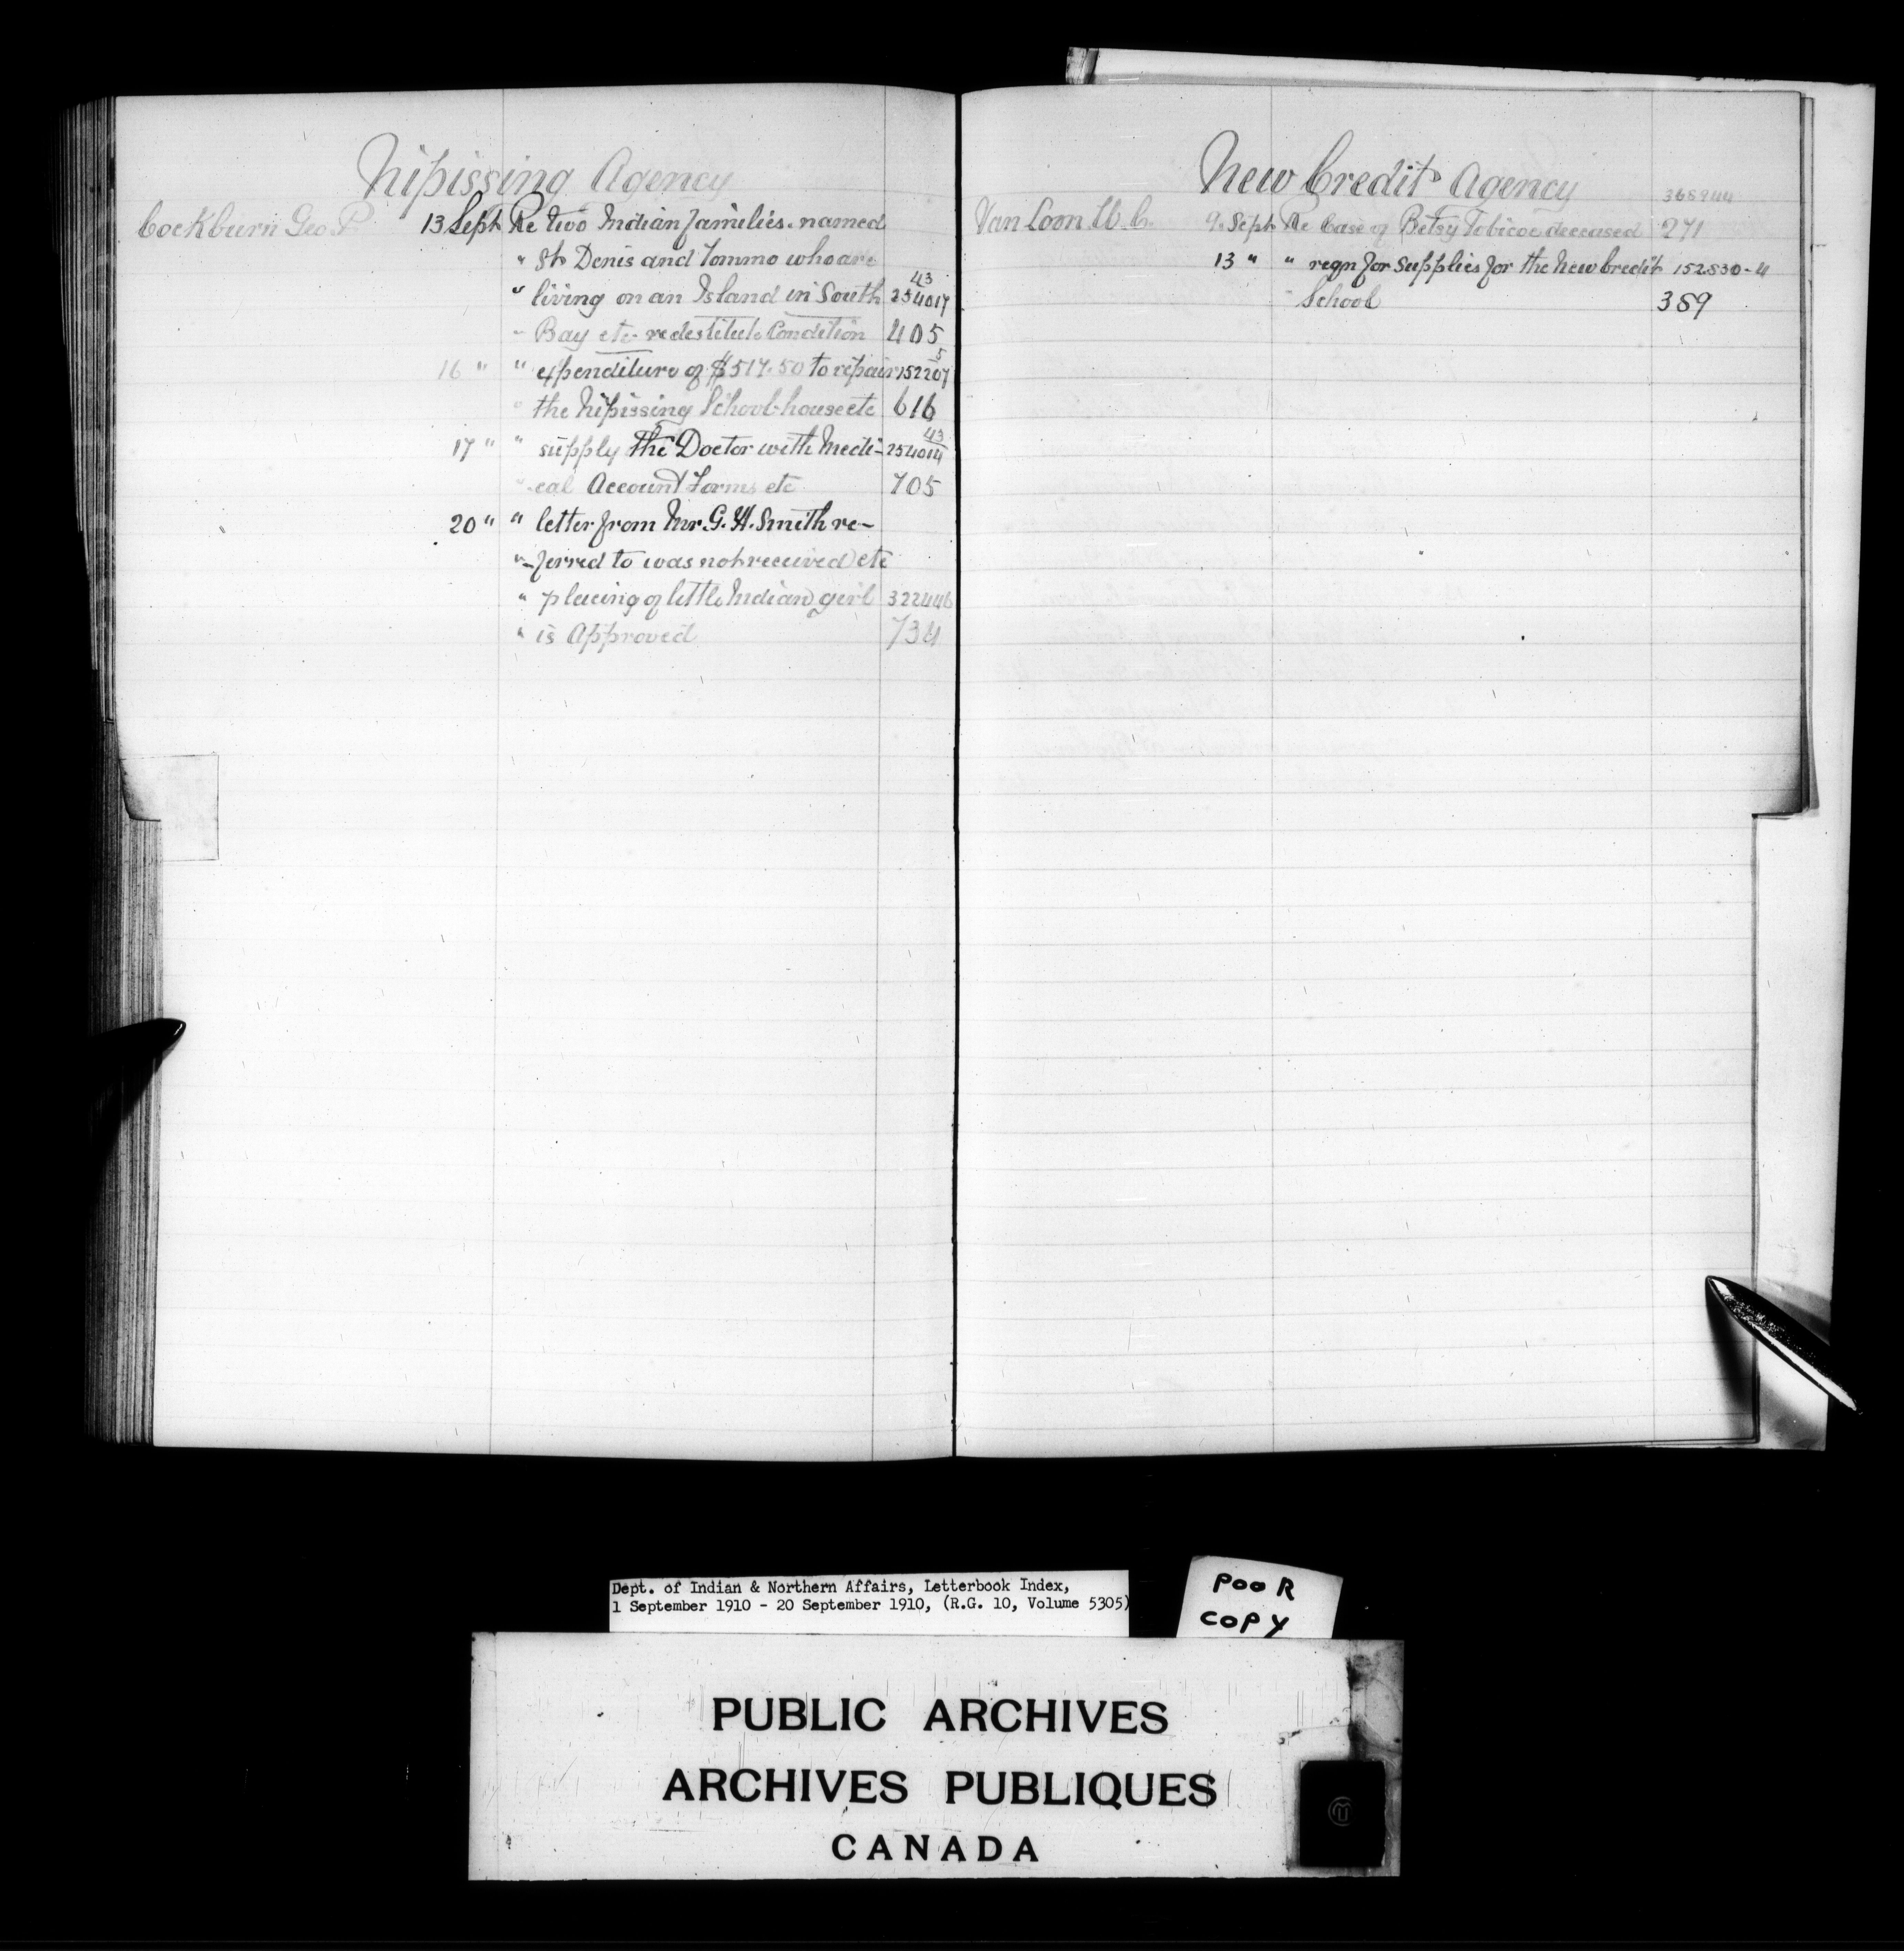 Nipissing Agency
Cockburn Geo P. 13 Sept Re two Indian families named
" St Denis and Commo who are
43
" living on an Island in South 254017
" Bay etc re destitute Condition 405
5
16 " " expenditure of $517.50 to repair 152207
" the Nipissing School-house etc 616
43
17 " " supply the Doctor with Medi- 254014
" -cal Account Forms etc 705
20 " " letter from Mr. G. H. Smith re-
" -ferred to was not received etc
" placing of little Indian girl 322446
" is Approved 734
New Credit Agency
368944
Van Loon W. C. 9 Sept Re Case of Betsy Tobicoe deceased 271
13 " " reqn for supplies for the New Credit 152530-4
" School 389
Dept. of Indian & Northern Affairs, Letterbook Index,
1 September 1910 - 20 September 1910, (R.G. 10, Volume 5305)
POOR
COPY
PUBLIC ARCHIVES
ARCHIVES PUBLIQUES
CANADA